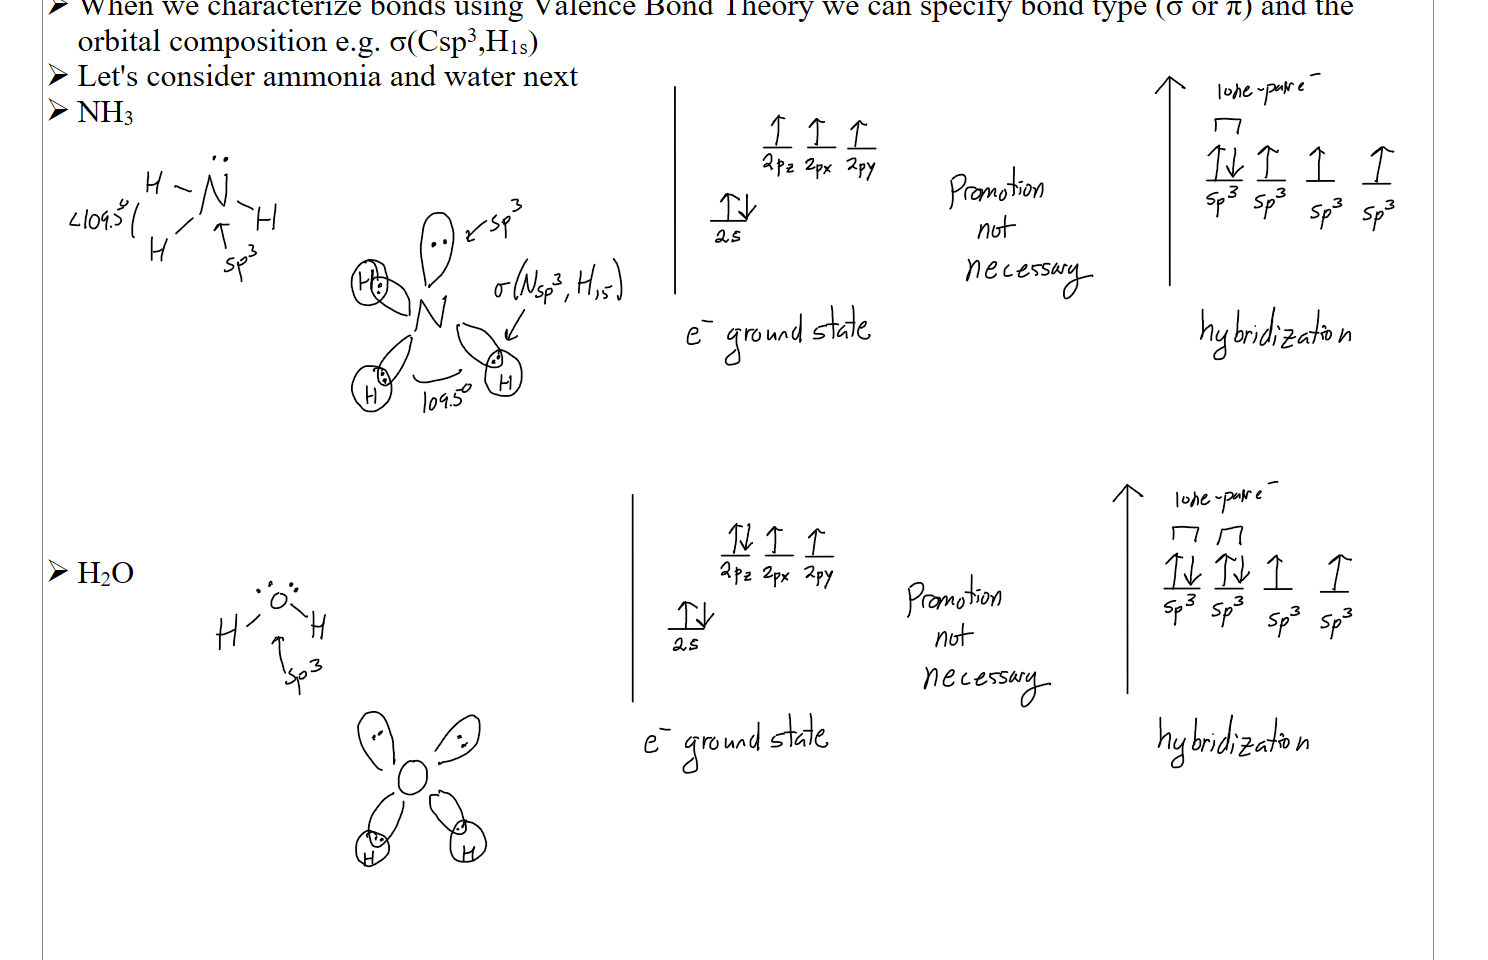 ➤ When we characterize bonds using Valence Bond Theory we can specify bond type (σ or π) and the
orbital composition e.g. σ(Csp³,H₁s)
➤ Let's consider ammonia and water next
➤ NH₃
H N H
H
<109.5°
sp³
sp³
σ(Nsp³, H₁s)
H N
H H
109.5°
↑ ↑ ↑
2pz 2px 2py
↑↓
2s
e⁻ ground state
Promotion
not
necessary
lone-pair e⁻
↑↓ ↑ ↑ ↑
sp³ sp³ sp³ sp³
hybridization
➤ H₂O
H O H
sp³
O
H H
↑↓ ↑ ↑
2pz 2px 2py
↑↓
2s
e⁻ ground state
Promotion
not
necessary
lone-pair e⁻
↑↓ ↑↓ ↑ ↑
sp³ sp³ sp³ sp³
hybridization